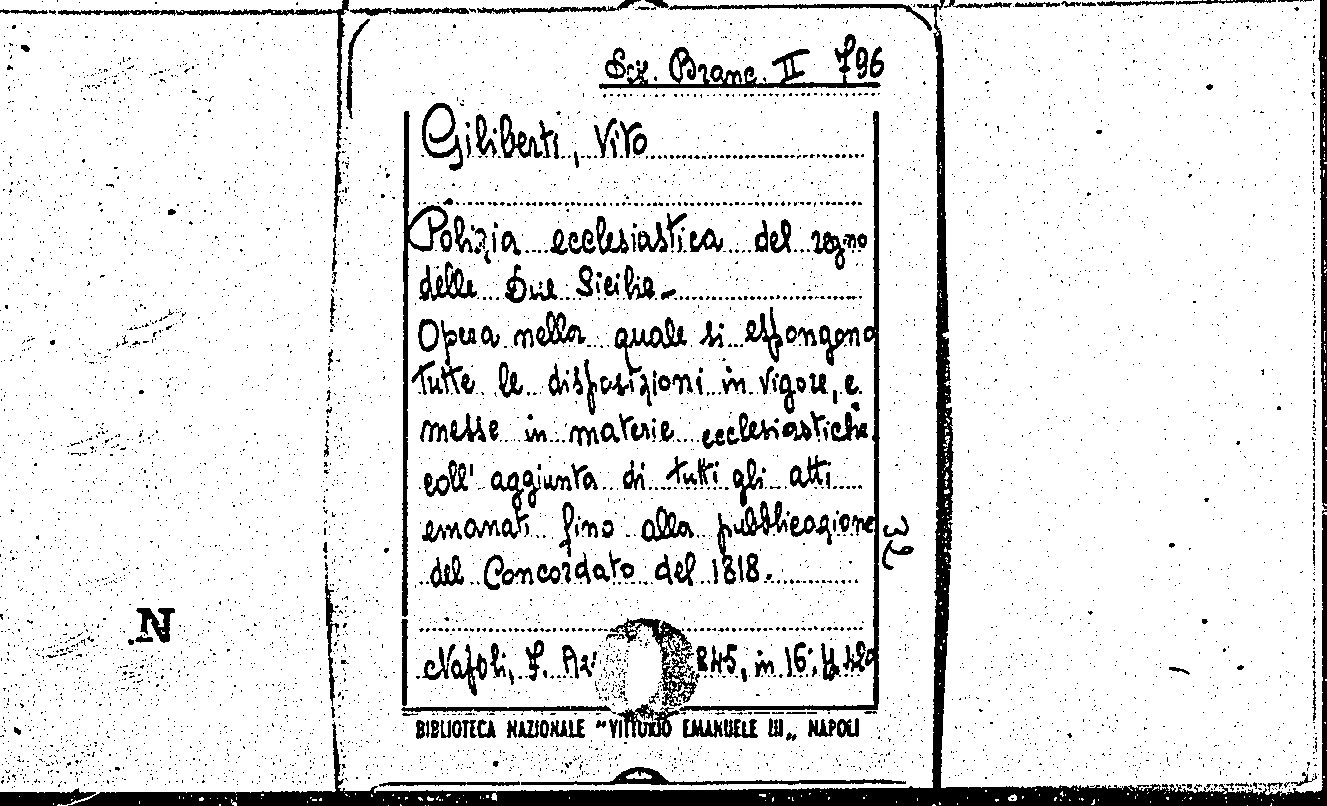 Sez. Branc. II 796
Giliberti, Vito
Polizia ecclesiastica del regno
delle Due Sicilie -
Opera nella quale si espongono
tutte le disposizioni in vigore, e
messe in materie ecclesiastiche
coll' aggiunta di tutti gli atti
emanati fino alla pubblicazione
del Concordato del 1818.
32
N
Napoli, 845, in 16°,
BIBLIOTECA NAZIONALE "VITTORIO EMANUELE III„ NAPOLI